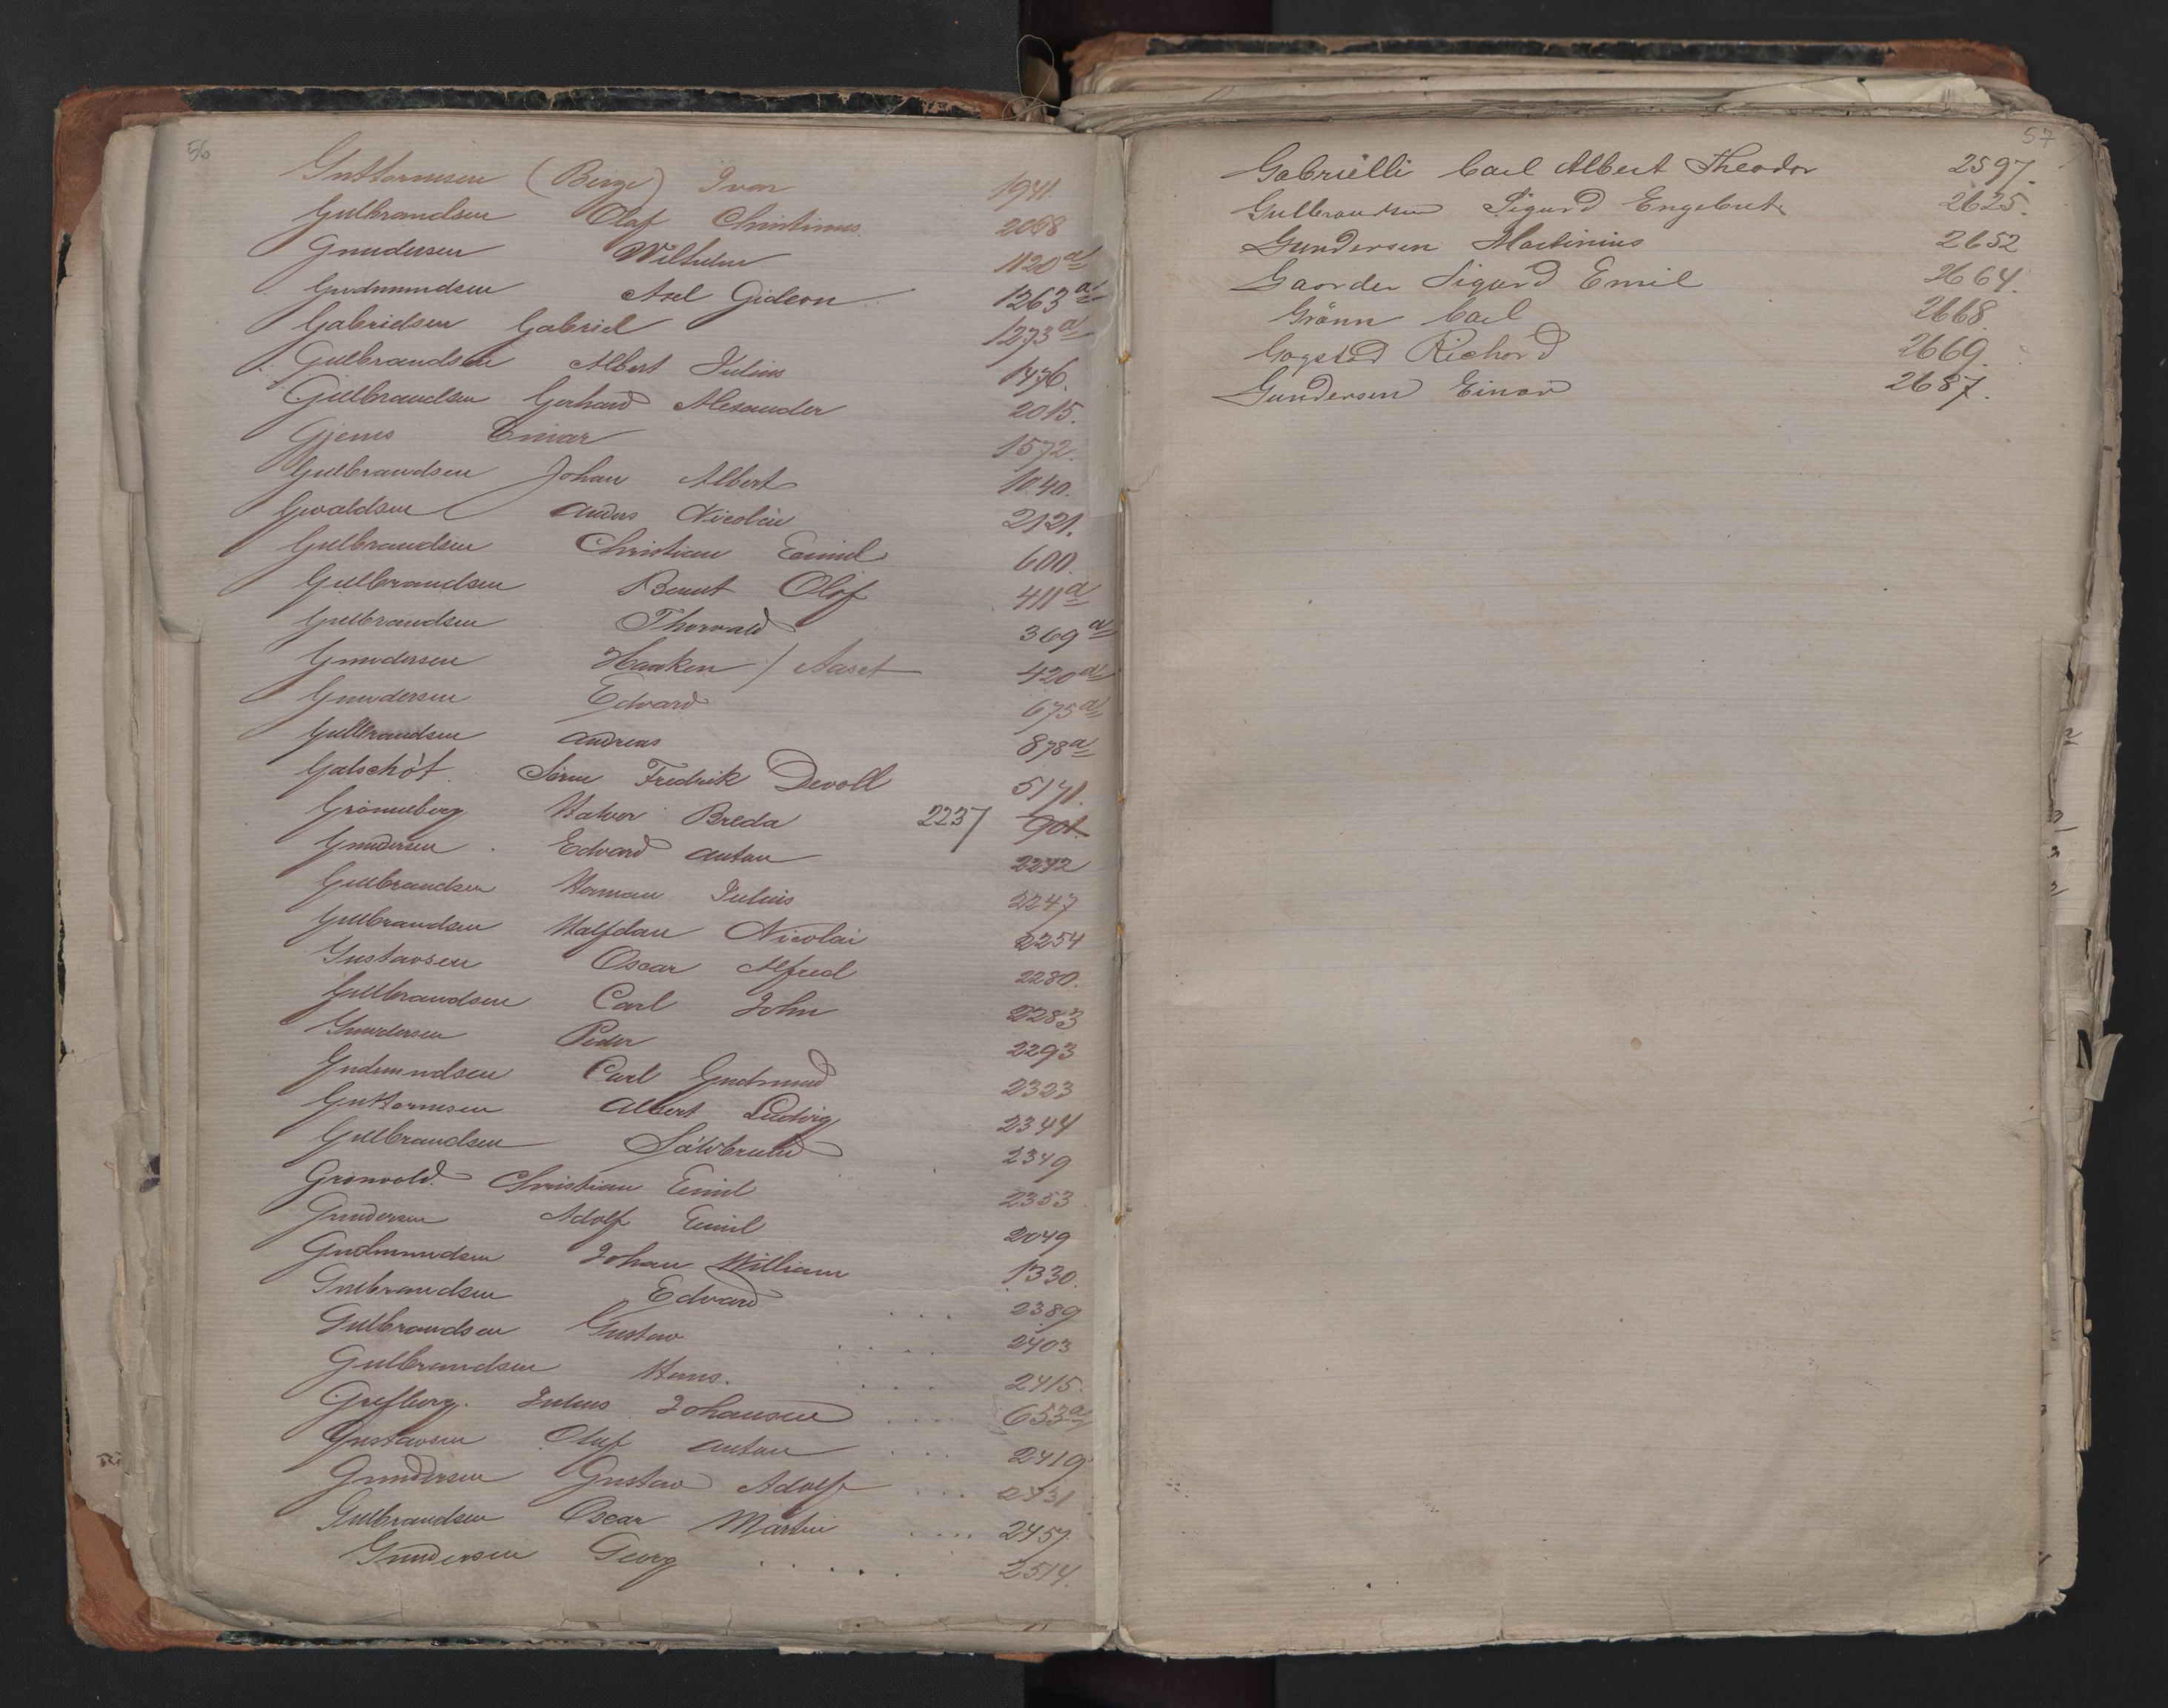 56
Guttormsen (Berge) Ivar 1941.
Gulbrandsen Olaf Christinus 2068
Gundersen Wilhelm 1120 a
Gudmundsen Axel Gideon 1263 a
Gabrielsen Gabriel 1273 a
Gulbrandsen Albert Julius 1436.
Gulbrandsen Gerhard Alexander 2015.
Gjems Einar 1572.
Gulbrandsen Johan Albert 1040.
Anders Nicolai 2121.
Gulbrandsen Christian Emil 600.
Gulbrandsen Bernt Olaf 411 a
Gulbrandsen Thorvald 369 a
Gundersen Haaken / Aaset 420 a
Gundersen Edvard 675 a
Gulbrandsen Andreas 878 a
Galschöt Sören Fredrik Devoll
Grönneberg Halvor Breda 2237 901.
Gundersen Edvard Anton 2242
Gulbrandsen Herman Julius 2247
Gulbrandsen Halfdan Nicolai 2254
Gustavsen Oscar Alfred 2280.
Gulbrandsen Carl John 2283
Gundersen Peder 2293
Gudmundsen Carl Gudmund 2323
Guttormsen Albert Ludvig 2344
Gulbrandsen 2349
Grönvold. Christian Emil 2353
Gundersen Adolf Emil 2049
Gudmundsen Johan William 1330.
Gulbrandsen Edvard . . . 2389
Gulbrandsen Gustav . . . . 2403
Gulbrandsen Hans. . . . . 2415.
Grefberg. Julius Johansen . . . . 653 a
Gustavsen Olaf Anton . . . 2419
Gundersen Gustav Adolf . . . 2431
Gulbrandsen Oscar Martin . . . . 2457.
Gundersen Georg . . . . . 2514.
57
Gabriëlli Carl Albert Theodor 2597.
Gulbrandsen Sigurd Engebret 2625.
Gundersen Martinius 2652
Gaarder Sigurd Emil 2664.
Grönn Carl 2668.
Gogstad Richard 2669.
Gundersen Einar 2687.
N